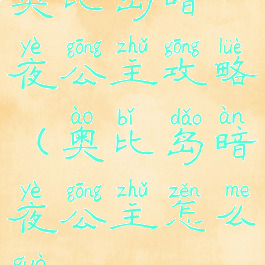 奥比岛暗
yè gōng zhǔ gōng lüè
夜公主攻略
ào bǐ dǎo àn
（奥比岛暗
yè gōng zhǔ zěn me
夜公主怎么
guò